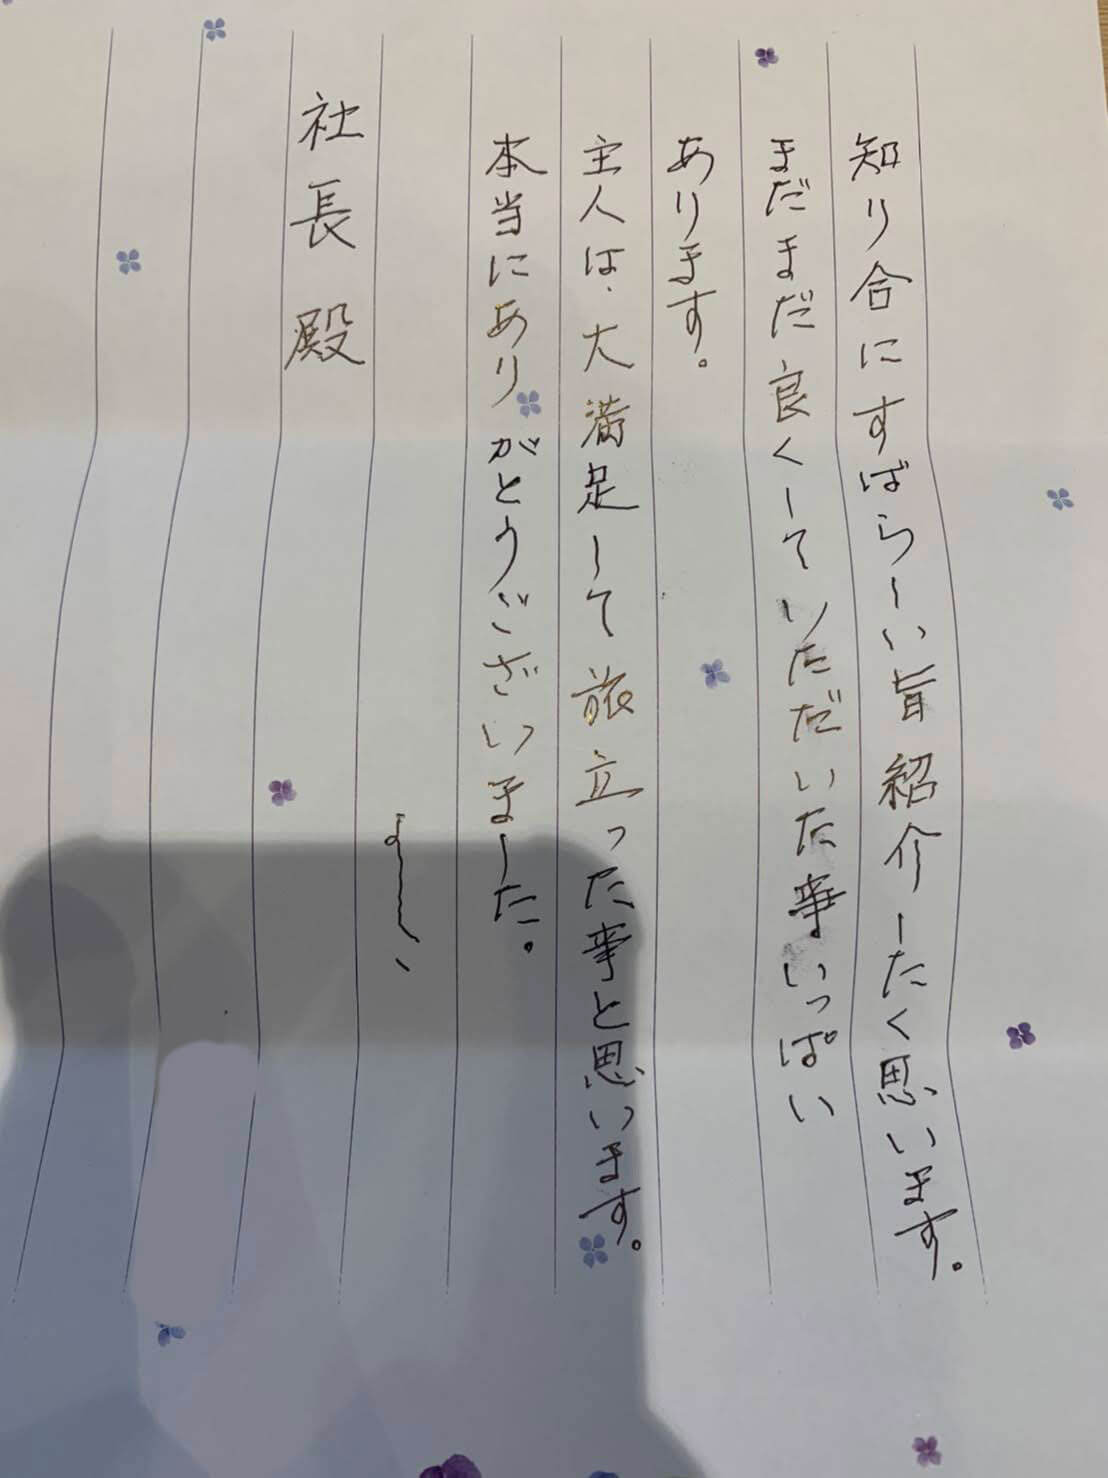 知り合にすばらしい旨紹介したく思います。
まだまだ良くしていただいた事いっぱい
あります。
主人は、大満足して旅立った事と思います。
本当にありがとうございました。
社長殿